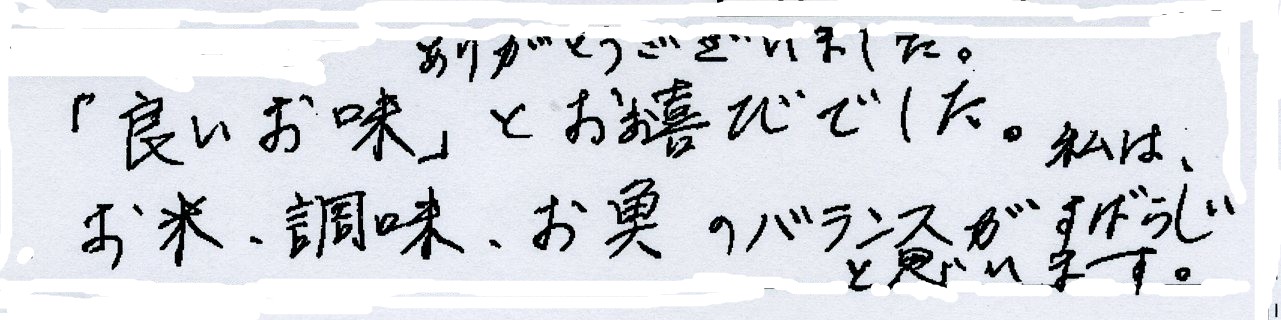 ありがとうございました。
「良いお味」とお喜びでした。私は、
お米、調味、お魚のバランスがすばらしい
と思います。